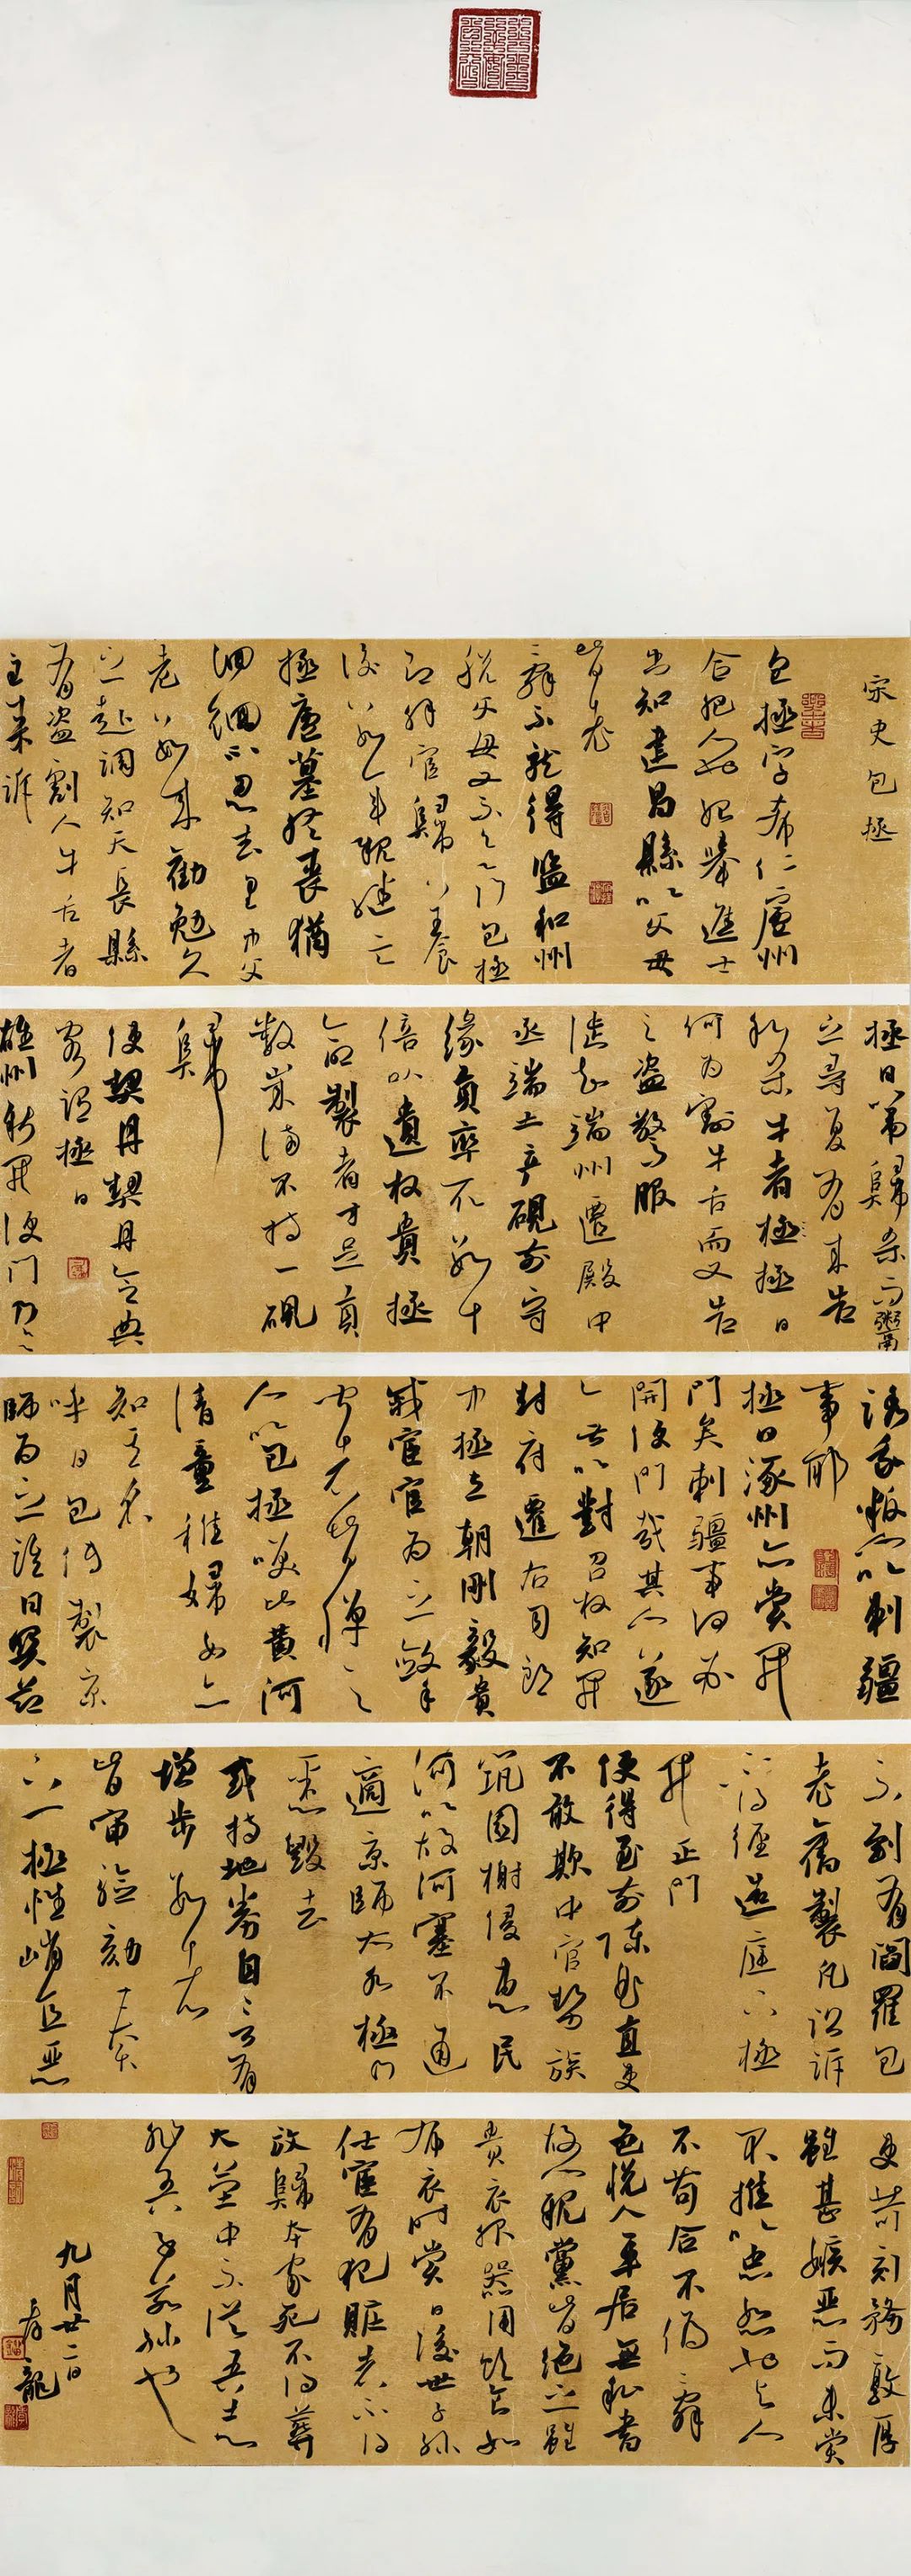 宋史包拯
包拯字希仁廬州
合肥人也始舉進士
出知建昌縣以父母
皆老
辭不就得監和州
稅父母又不欲行包拯
即解官歸養
後數年親繼亡
拯廬墓終喪猶
徊徊不忍去里中父
老數來勸勉久
之赴調知天長縣
有盜割人牛舌者
主來訴
拯曰第歸殺而鬻
之尋復有來告
私殺牛者拯拯曰
何為割牛舌而又告
之盜驚服
徙知端州遷殿中
丞端土產硯前守
緣貢率取數十
倍以遺權貴拯
命製者才足貢
數歲滿不持一硯
歸
使契丹契丹令典
客謂拯曰
雄州新開便門乃
誘我叛人以刺疆
事耶
拯曰涿州亦嘗開
門矣刺疆事何必
開便門哉其人遂
無以對召權知開
封府遷右司郎
中拯立朝剛毅貴
戚宦官為之斂手
聞者皆憚之
人以包拯笑比黃河
清童稚婦女亦
知其名
呼曰包待製京
師為之語曰關節
不到有閻羅包
老舊製凡訟訴
不得徑造庭下拯
開正門
使得至前陳曲直吏
不敢欺中官勢族
築園榭侵惠民
河以故河塞不通
適京師大水拯乃
悉毀去
或持地券自言有
增步數者
皆審驗劾奏
之拯性峭直惡
吏苛刻務敦厚
雖甚嫉惡而未嘗
不推以忠恕也與人
不苟合不偽辭
色悅人平居無私書
故人親黨皆絕之雖
貴衣服器用飲食如
布衣時嘗曰後世子孫
仕宦有犯贓者不得
放歸本家死不得葬
大塋中不從吾志
非吾子若孫也
九月廿二日